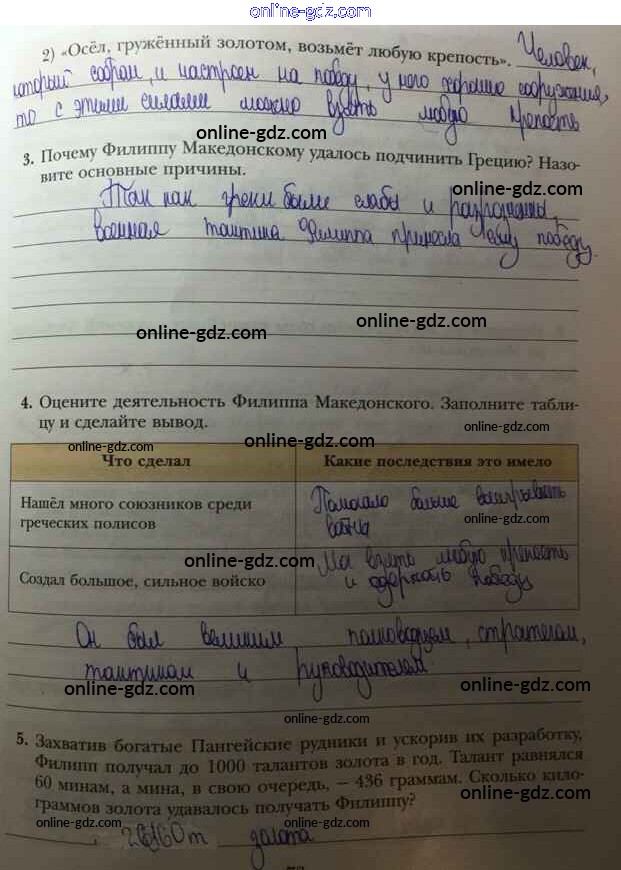 online-gdz.com
2) «Осёл, гружённый золотом, возьмёт любую крепость». Человек,
который собран, и настроен на победу, у него хорошие сооружения,
то с этими силами можно взять любую крепость
online-gdz.com
3. Почему Филиппу Македонскому удалось подчинить Грецию? Назо-
вите основные причины.
online-gdz.com
Так как греки были слабы и разрознены,
военная тактика Филиппа принесла ему победу.
online-gdz.com
online-gdz.com
4. Оцените деятельность Филиппа Македонского. Заполните табли-
цу и сделайте вывод.
online-gdz.com
online-gdz.com
online-gdz.com
Что сделал
Какие последствия это имело
Нашёл много союзников среди
греческих полисов
Помогало больше выигрывать
войны
online-gdz.com
online-gdz.com
Создал большое, сильное войско
Мог взять любую крепость
и одержать победу
online-gdz.com
Он был великим полководцем, стратегом,
тактиком и руководителем.
online-gdz.com
online-gdz.com
online-gdz.com
5. Захватив богатые Пангейские рудники и ускорив их разработку,
Филипп получал до 1000 талантов золота в год. Талант равнялся
60 минам, а мина, в свою очередь, – 436 граммам. Сколько кило-
граммов золота удавалось получать Филиппу?
online-gdz.com
online-gdz.com
online-gdz.com
золота